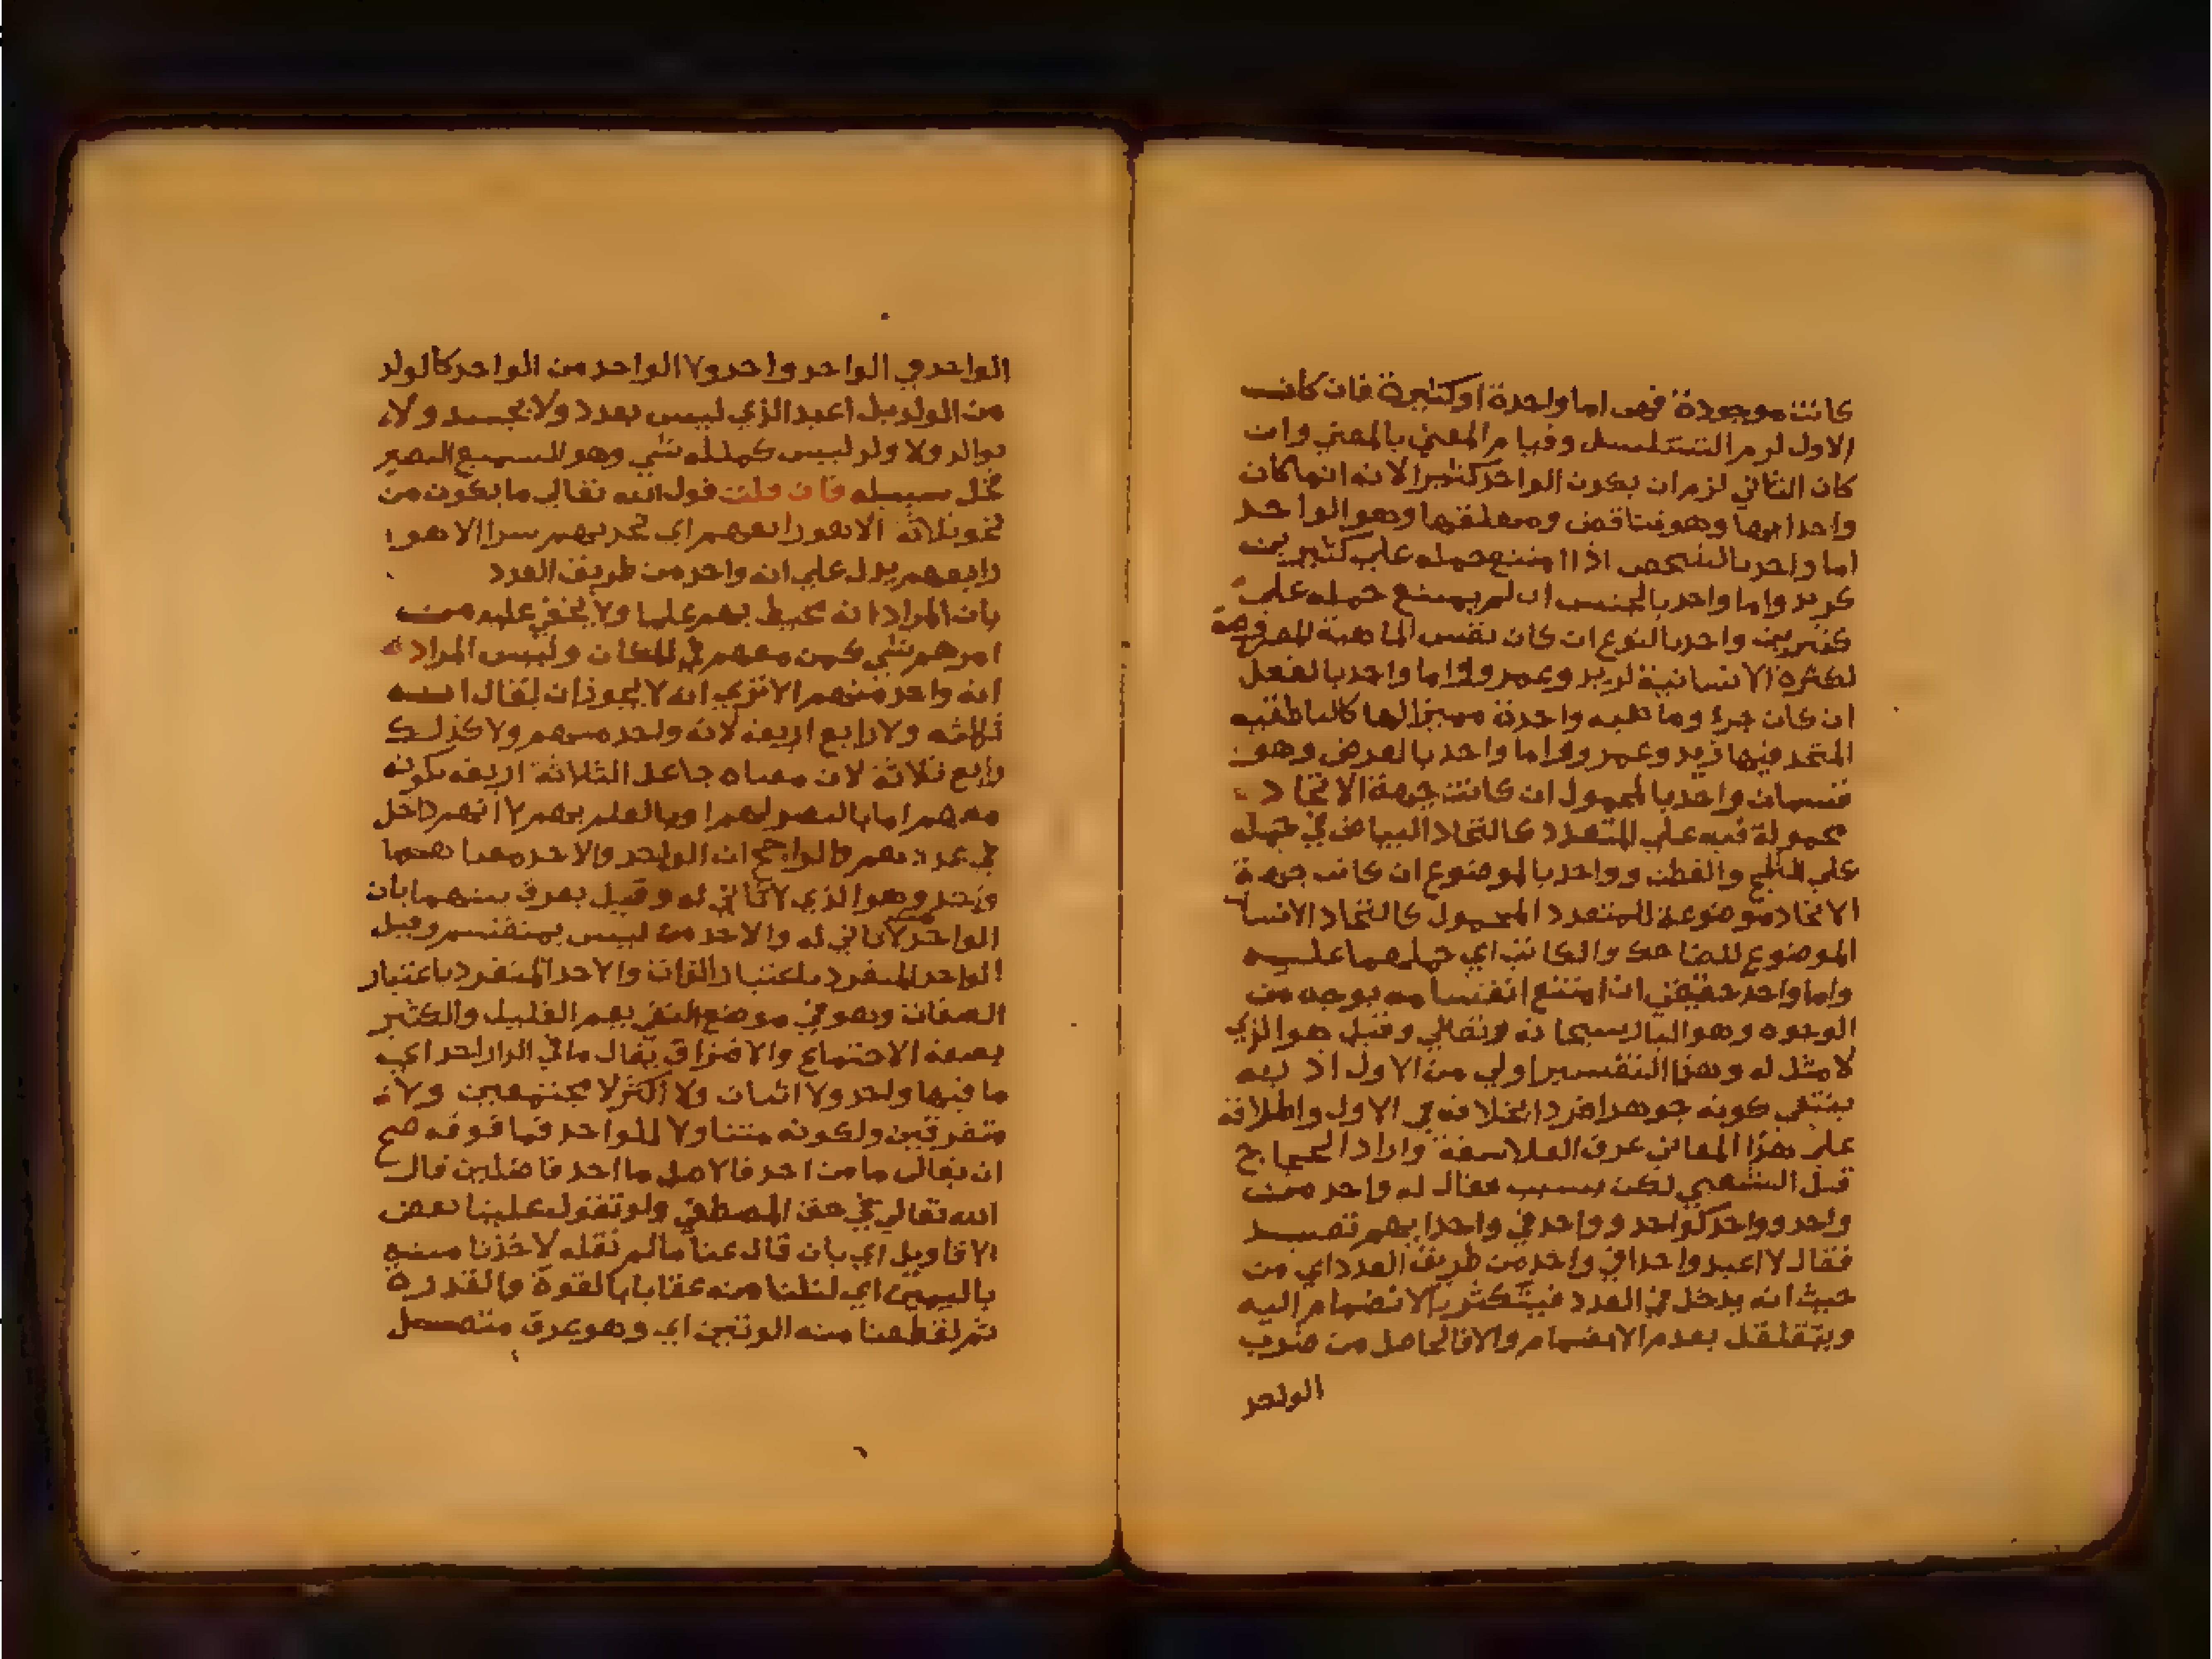 كانت موجودة فهى اما واحدة او كثيرة فان كانت
الاول لزم التسلسل وقيام المعني بالمعني وان
كان الثاني لزم ان يكون الواحد كثيرا لانه انما كان
واحدا بها وهو متناقض ومعلقها وهو الواحد
اما واحد بالشخص اذا امتنع حمله علي كثيرين
كزيد واما واحد بالجنس ان لم يمتنع حمله علي
كثيرين واحد بالنوع ان كان نفس الماهية المعروضة
لكثرة الانسانية لزيد وعمرو واما واحد بالفصل
ان كان جزء وما عليه واحدة مميزا لها كالناطقية
المتحد فيها زيد وعمرو واما واحد بالعرض وهو
قسمان واحد بالمحمول ان كانت جهة الاتحاد
محمولة فيه علي المتعدد كاتحاد البياض في حمله
علي الثلج والقطن وواحد بالموضوع ان كانت جهة
الاتحاد موضوعة للمتعدد المحمول كاتحاد الانسا
الموضوع للضاحك والكاتب اي حملهما عليه
واما واحد حقيقي ان امتنع انقسامه بوجه من
الوجوه وهو الباري سبحانه وتعالي وقيل هو الذي
لا مثل له وهذا التفسير اولي من الاول اذ به
ينتفي كونه جوهرا فردا بخلافه في الاول واطلاقه
علي هذا المعاني عرف الفلاسفة واراد الحجاج
قتل الشعبي لكن بسبب فقال له واحد من
واحد وواحد كواحد وواحد في واحد ايهم تعبد
فقال لا اعبد واحدا في واحد من طريق العدد اي من
حيث انه يدخل في العدد فيتكثر بالانضمام اليه
ويتقلقل بعدم الانضمام والا فالحاصل من ضرب
الواحد
الواحد في الواحد واحد ولا الواحد من الواحد كالولد
من الولد بل اعبد الذي ليس بعدد ولا بجسد ولا
بوالد ولا ولد ليس كمثله شي وهو السميع البصير
فخل سبيله فان قلت قول الله تعالي ما يكون من
نجوي ثلاثة الا هو رابعهم اي نحو بهم سرا الا هو
رابعهم يدل علي انه واحد من طريق العدد
بان المراد انه محيط بهم علما ولا يخفي عليه من
امرهم شي كمن معهم في المكان وليس المراد
انه واحد منهم الا تري انه لا يجوز ان يقال الله
ثلاثه ولا رابع اربعة لانه واحد منهم ولا كذلك
رابع ثلاثة لان معناه جاعل الثلاثة اربعة بكونه
معهم اما بالنصر لهم او بالعلم بهم لا انهم داخل
في عددهم والراجح ان الواحد والاحد معناهما
واحد وهو الذي لا ثاني له وقيل يفرق بينهما بان
الواحد لا ثاني له والاحد من ليس بمنقسم وقيل
الواحد المنفرد باعتبار الذات والاحد المنفرد باعتبار
الصفات وهو في موضع النفي يعم القليل والكثير
بصفة الاجتماع والافتراق يقال ما في الدار احد اي
ما فيها واحد ولا اثنان ولا اكثر لا مجتمعين ولا
متفرقين ولكونه متناولا للواحد فما فوقه صح
ان يقال ما من احد فالاصل ما احد فاضلين قال
الله تعالي في حق المصطفي ولو تقول علينا بعض
الاقاويل اي بان قال عنا ما لم نقله لاخذنا منه
باليمين اي لنلنا منه عقابا بالقوة والقدرة
ثم لقطعنا منه الوتين اي وهو عرق متصل